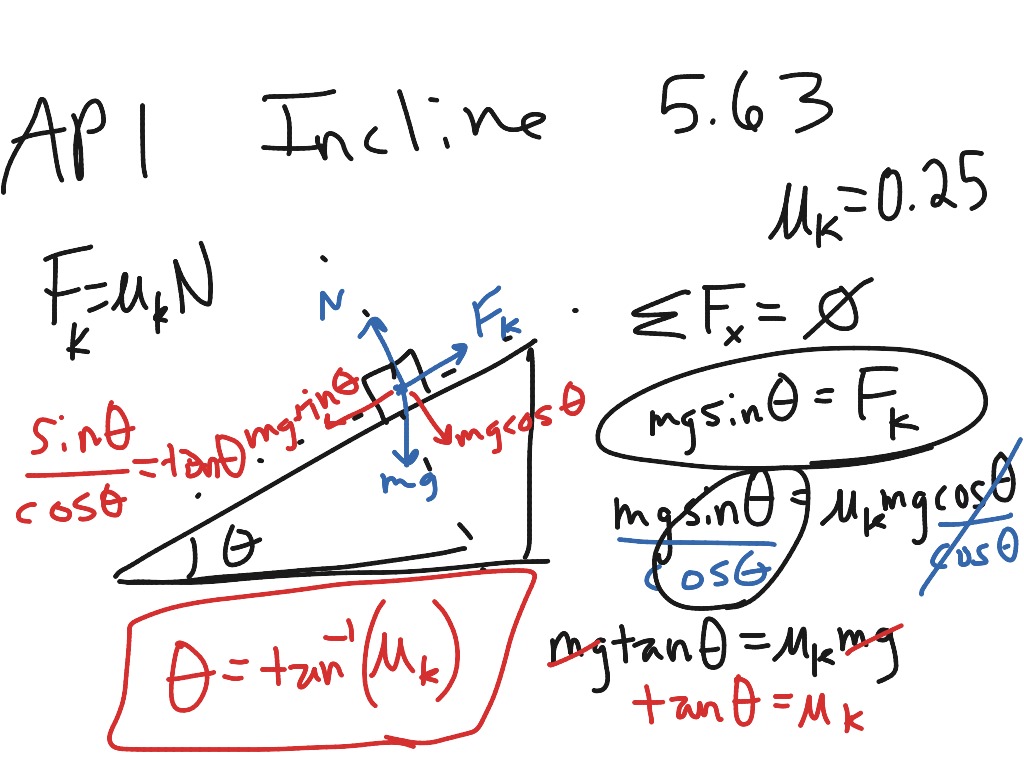 AP1 Incline 5.63
μk=0.25
Fk=μkN
ΣFx=∅
N
Fk
mgsinθ
mgcosθ
mg
θ
sinθ/cosθ=tanθ
mgsinθ=Fk
mgsinθ/cosθ=μkmgcosθ/cosθ
mgtanθ=μkmg
tanθ=μk
θ=tan⁻¹(μk)